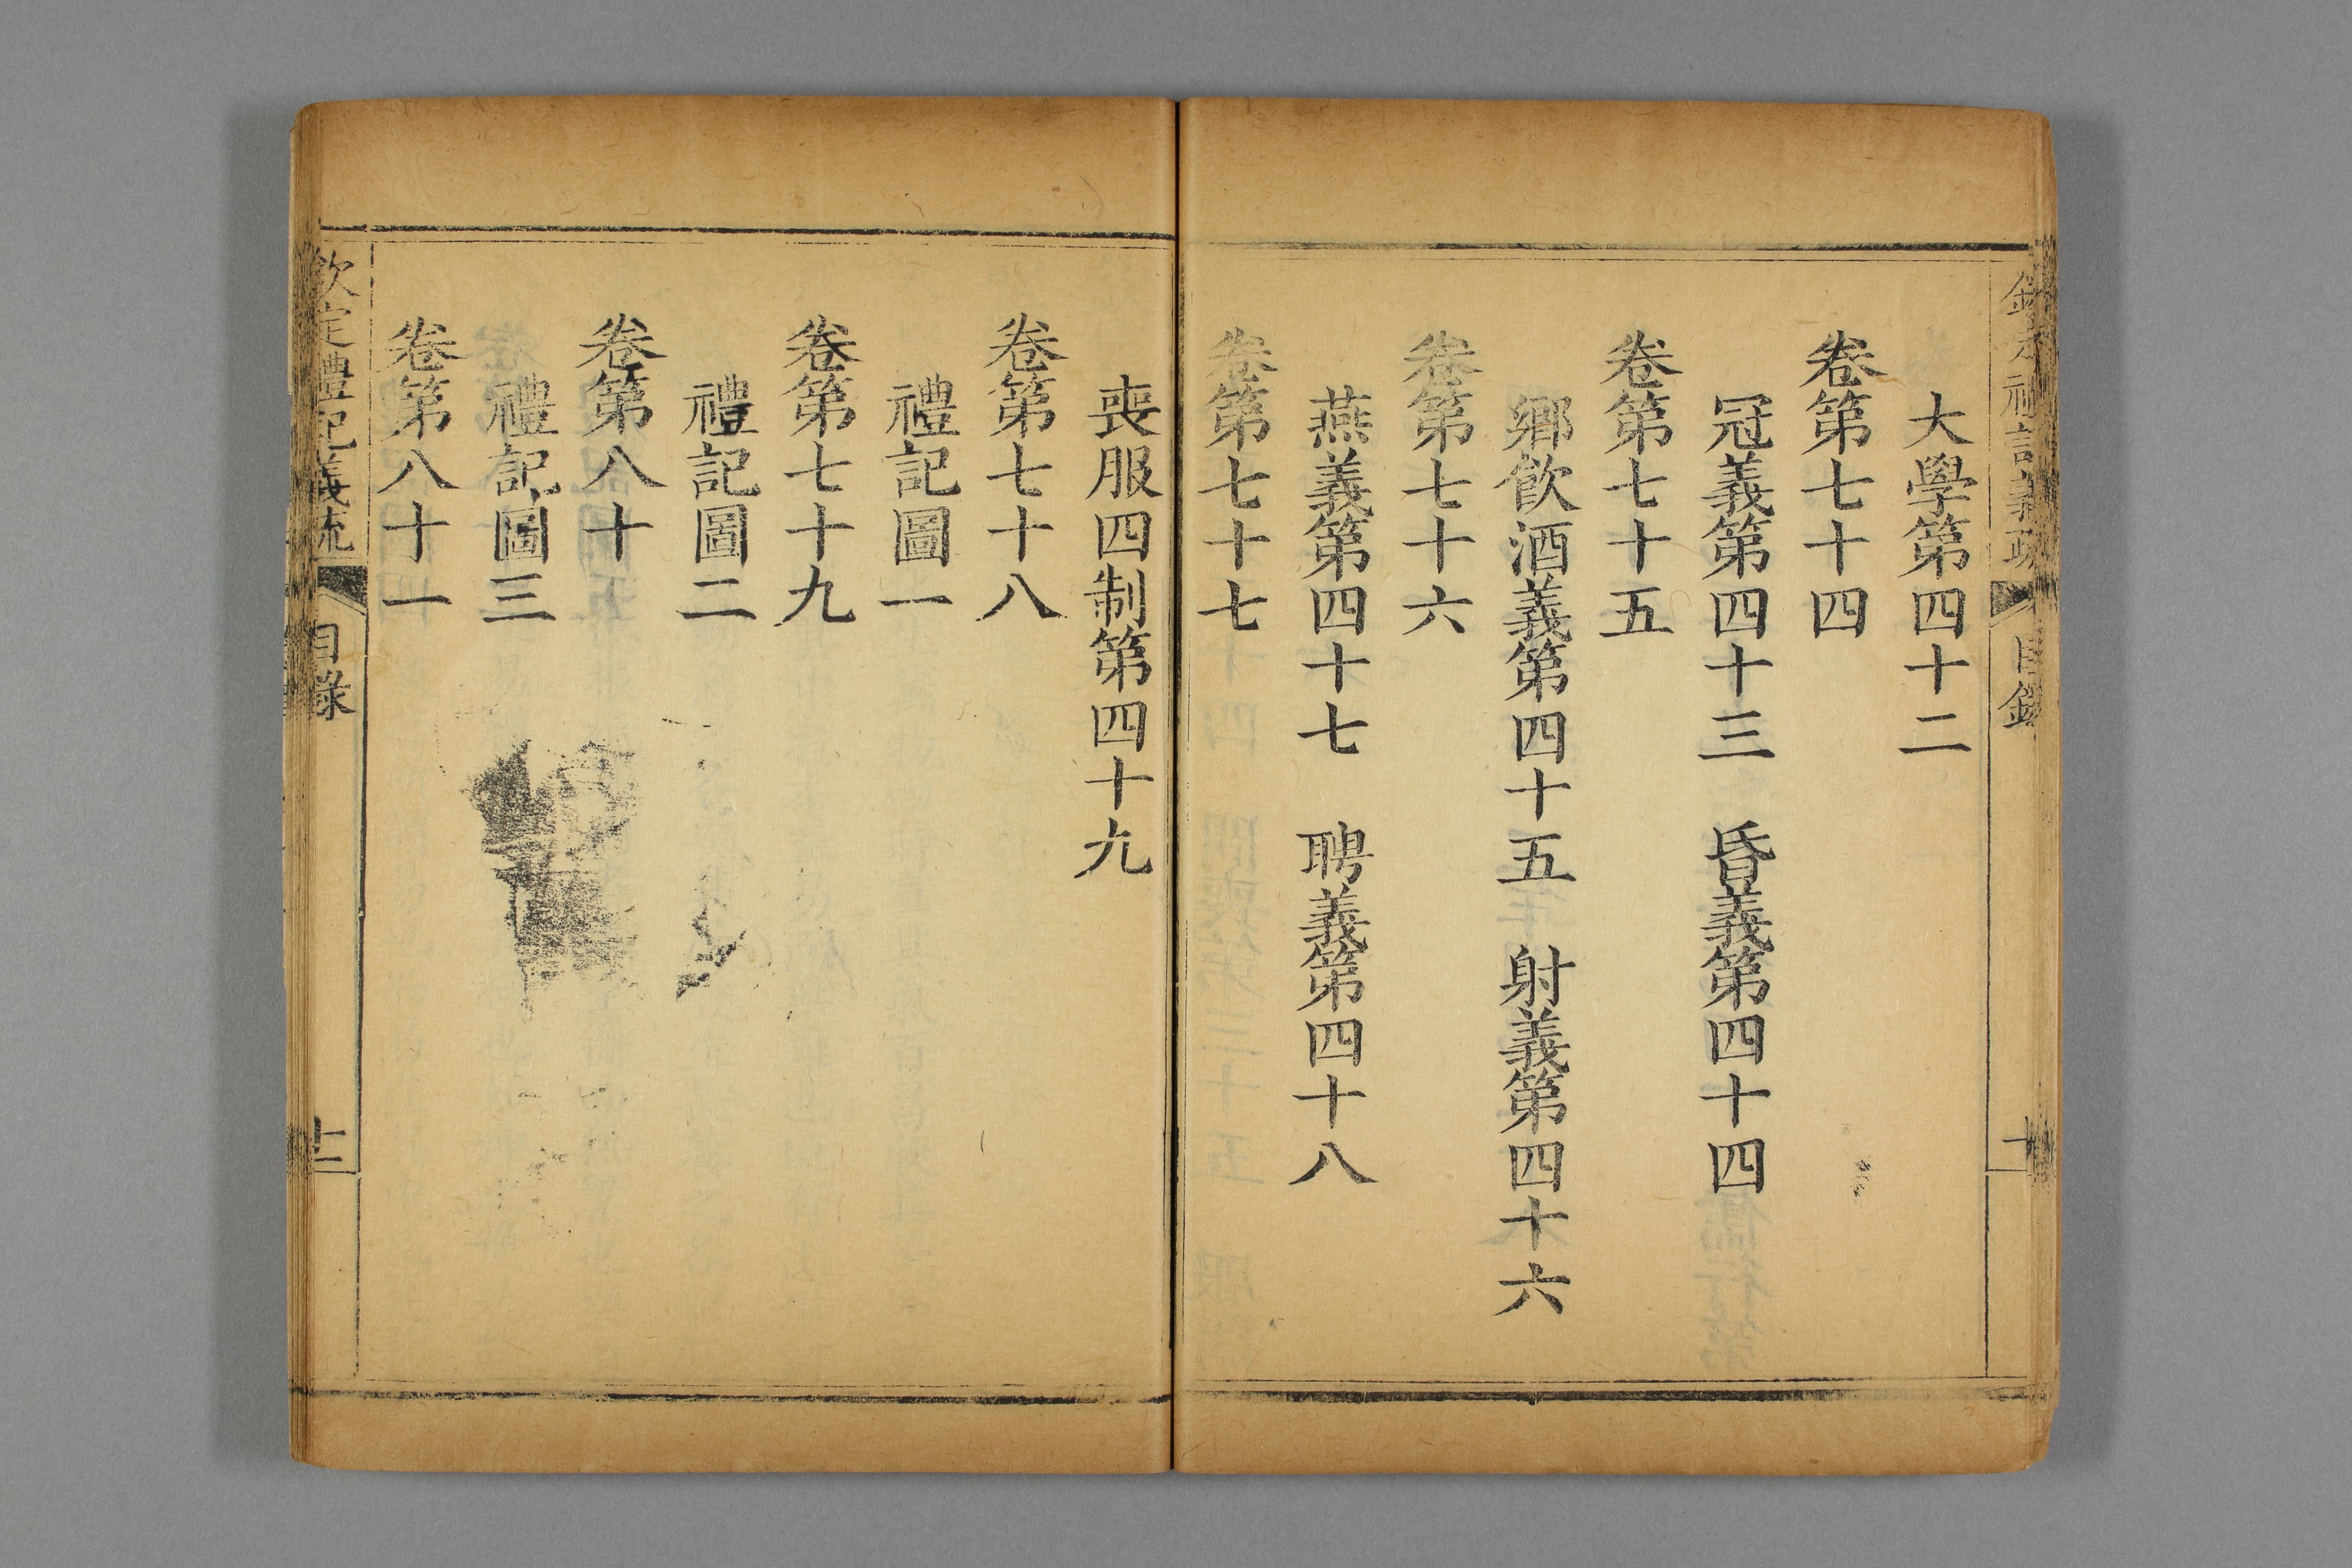 大學第四十二
卷第七十四
冠義第四十三　昏義第四十四
卷第七十五
鄉飲酒義第四十五　射義第四十六
卷第七十六
燕義第四十七　聘義第四十八
卷第七十七
喪服四制第四十九
卷第七十八
禮記圖一
卷第七十九
禮記圖二
卷第八十
禮記圖三
卷第八十一
欽定禮記義疏
目錄